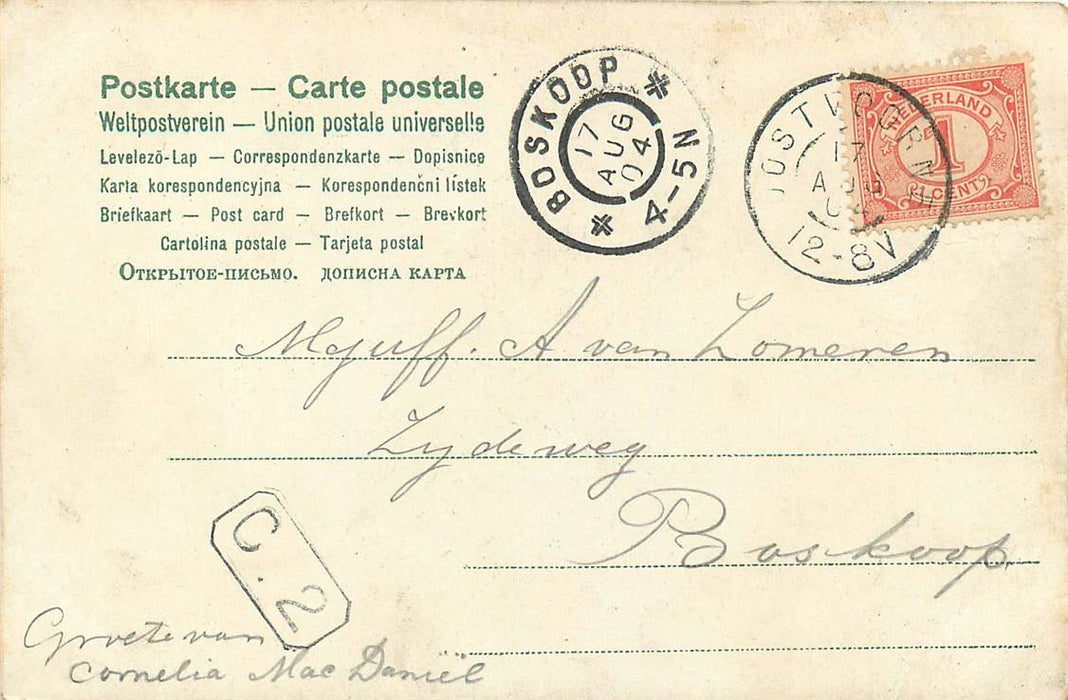 Postkarte — Carte postale
Weltpostverein — Union postale universelle
Levelező-Lap — Correspondenzkarte — Dopisnice
Karta korespondencyjna — Korespondenční lístek
Briefkaart — Post card — Brefkort — Brevkort
Cartolina postale — Tarjeta postal
Открытое-письмо. дописна карта
BOSKOOP
17
AUG
04
4-5N
OOSTVOORNE
17
AUG
04
12-8V
NEDERLAND
1
CENT
Mejuff. A van Zomeren
Zydeweg
Boskoop.
C.2
Groete van
Cornelia Mac Daniël